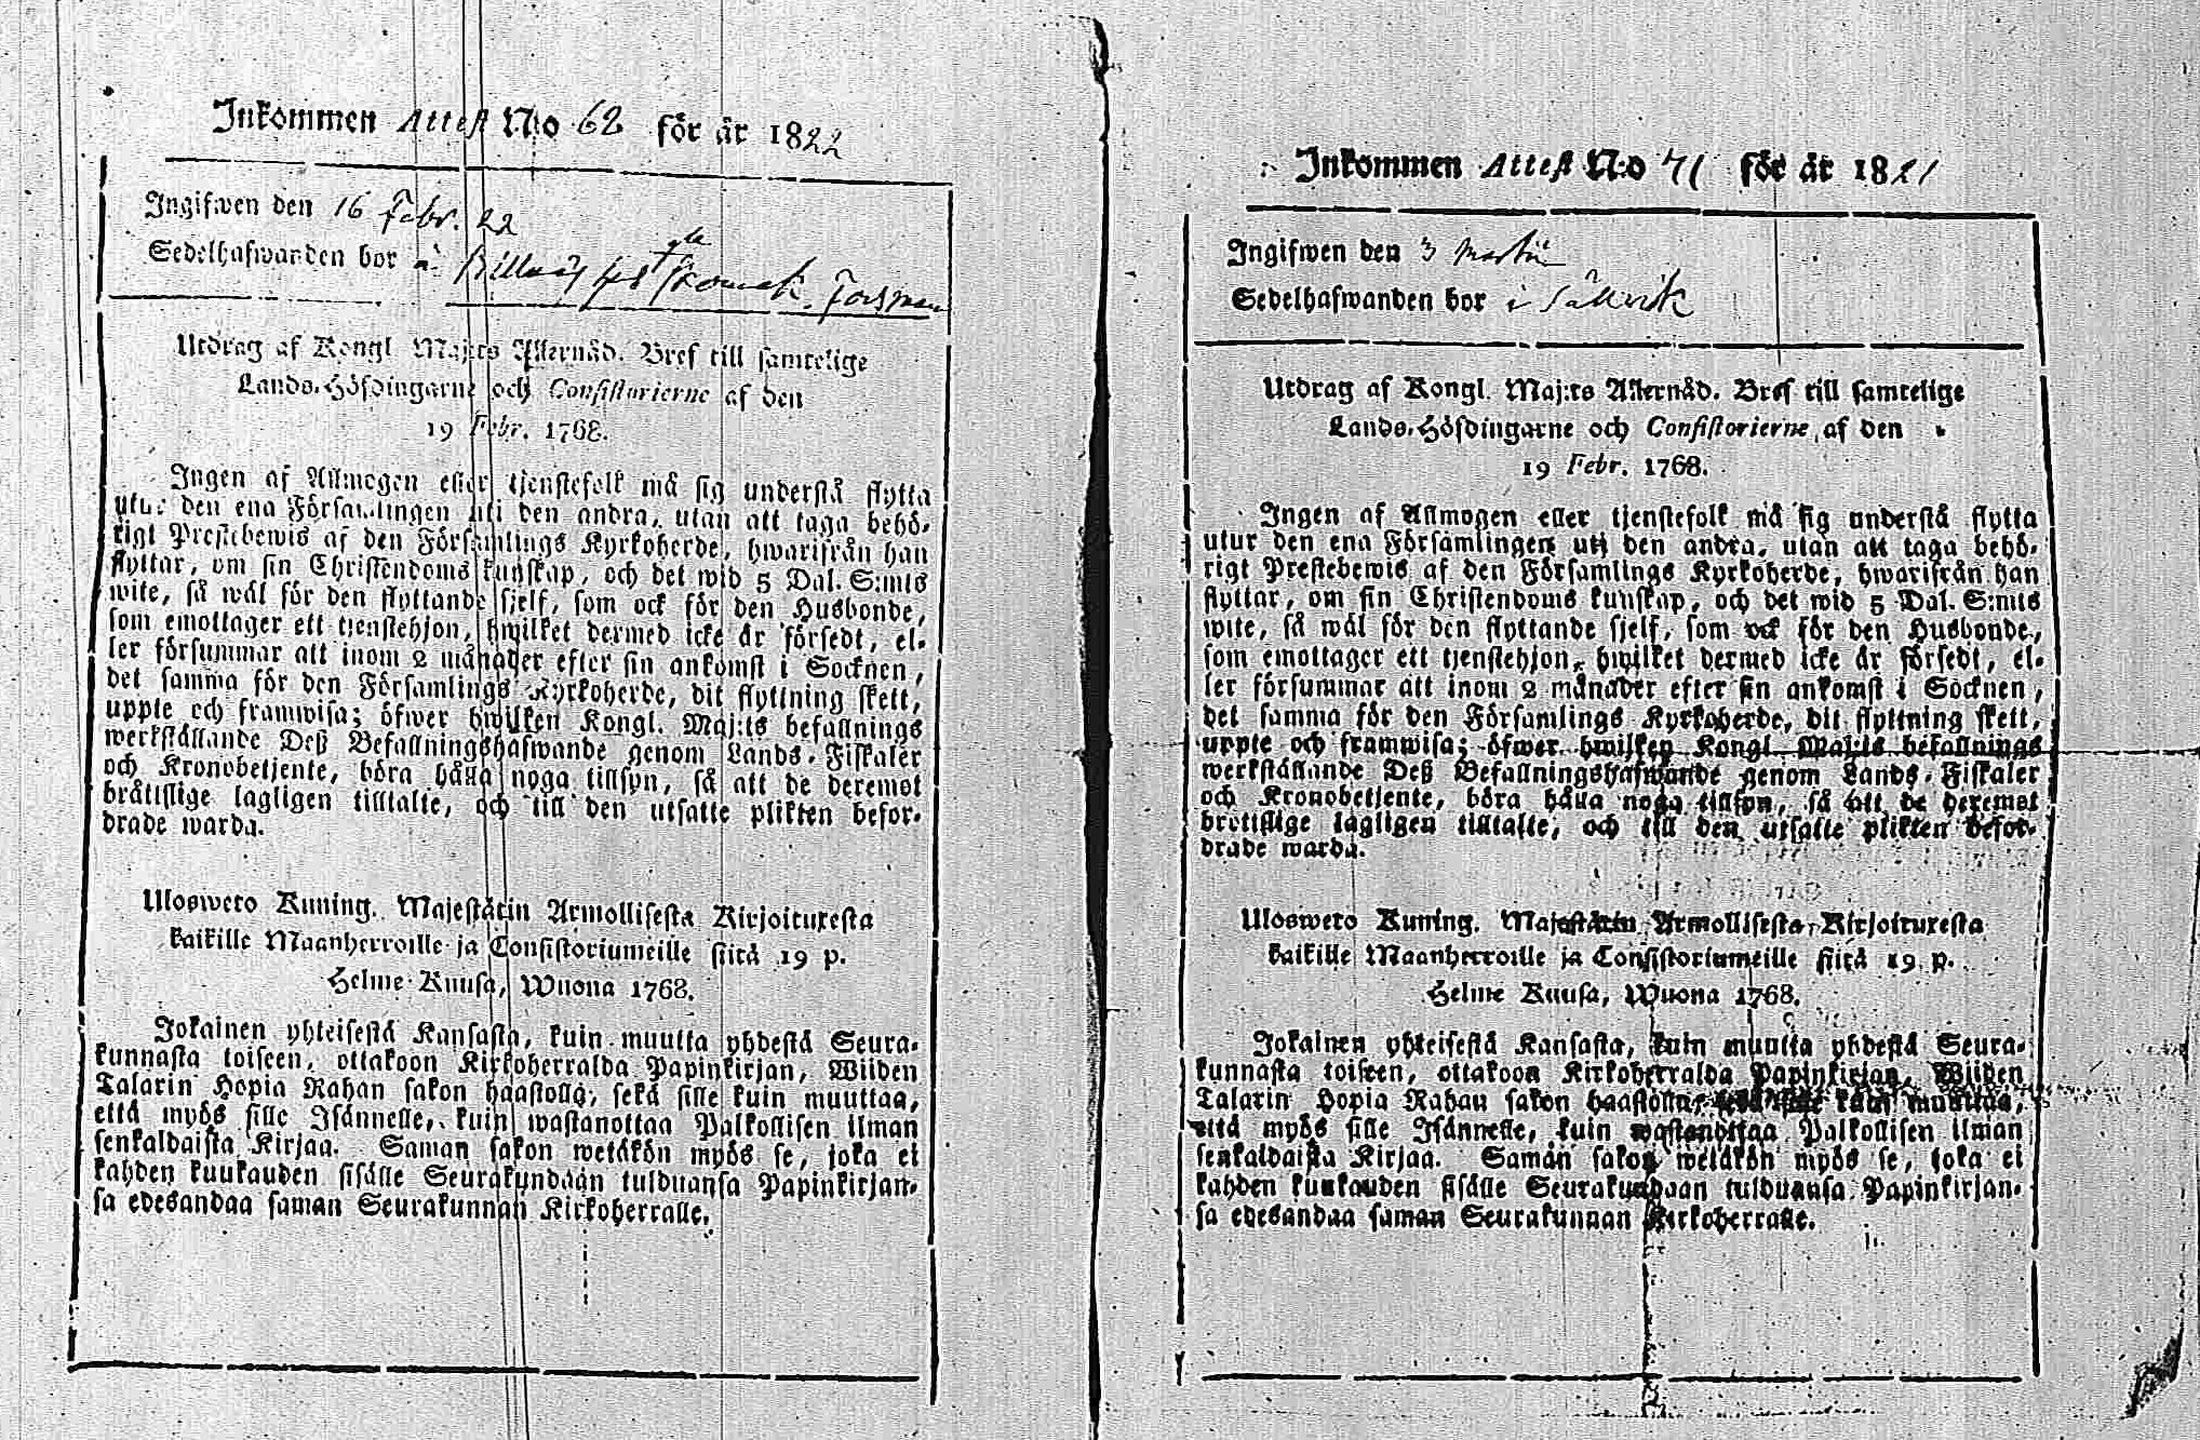 Inkommen Attest N:o 62 för år 1822
Ingifwen den 16 Febr. 22
Sedelhafwanden bor å Billnäs hos Forsman
Utdrag af Kongl. Maj:ts Allernåd. Bref till samtelige
Lands-Höfdingarne och Consistorierne af den
19 Febr. 1768.
Ingen af Allmogen eller tjenstefolk må sig understå flytta
utur den ena Församlingen uti den andra, utan att taga behö-
rigt Prestebewis af den Församlings Kyrkoherde, hwarifrån han
flyttar, om sin Christendoms kunskap, och det wid 5 Dal. S:mts
wite, så wäl för den flyttande sjelf, som ock för den Husbonde,
som emottager ett tjenstehjon, hwilket dermed icke är försedt, el-
ler försummar att inom 2 månader efter sin ankomst i Socknen,
det samma för den Församlings Kyrkoherde, dit flyttning skett,
uppte och framwisa; öfwer hwilken Kongl. Maj:ts befallnings
werkställande Deß Befallningshafwande genom Lands-Fiskaler
och Kronobetjente, böra hålla noga tillsyn, så att de deremot
bråttslige lagligen tilltalte, och till den utsatte plikten befor-
drade warda.
Ulosweto Kuning. Majestätin Armollisesta Kirjoituxesta
kaikille Maanherroille ja Consistoriumeille siitä 19 p.
Helme-Kuusa, Wuona 1768.
Jokainen yhteisestä Kansasta, kuin muutta yhdestä Seura-
kunnasta toiseen, ottakoon Kirkoherralda Papinkirjan, Wiiden
Talarin Hopia Rahan sakon haastolla, sekä sille kuin muuttaa,
että myös sille Isännelle, kuin wastanottaa Palkollisen ilman
senkaldaista Kirjaa. Saman sakon wetäkön myös se, joka ei
kahden kuukauden sisälle Seurakundaan tulduansa Papinkirjan-
sa edesandaa saman Seurakunnan Kirkoherralle.
Inkommen Attest N:o 71 för år 1821
Ingifwen den 3 Martii
Sedelhafwanden bor i Sällvik
Utdrag af Kongl. Maj:ts Allernåd. Bref till samtelige
Lands-Höfdingarne och Consistorierne af den
19 Febr. 1768.
Ingen af Allmogen eller tjenstefolk må sig understå flytta
utur den ena Församlingen uti den andra, utan att taga behö-
rigt Prestebewis af den Församlings Kyrkoherde, hwarifrån han
flyttar, om sin Christendoms kunskap, och det wid 5 Dal. S:mts
wite, så wäl för den flyttande sjelf, som ock för den Husbonde,
som emottager ett tjenstehjon, hwilket dermed icke är försedt, el-
ler försummar att inom 2 månader efter sin ankomst i Socknen,
det samma för den Församlings Kyrkoherde, dit flyttning skett,
uppte och framwisa; öfwer hwilken Kongl. Maj:ts befallnings
werkställande Deß Befallningshafwande genom Lands-Fiskaler
och Kronobetjente, böra hålla noga tillsyn, så att de deremot
brottslige lagligen tilltalte, och till den utsatte plikten befor-
drade warda.
Ulosweto Kuning. Majestätin Armollisesta Kirjoituxesta
kaikille Maanherroille ja Consistoriumeille siitä 19 p.
Helme Kuusa, Wuona 1768.
Jokainen yhteisestä Kansasta, kuin muutta yhdestä Seura-
kunnasta toiseen, ottakoon Kirkoherralda Papinkirjan, Wiiden
Talarin Hopia Rahan sakon haastolla, sekä sille kuin muuttaa,
että myös sille Isännelle, kuin wastanottaa Palkollisen ilman
senkaldaista Kirjaa. Saman sakon wetäkön myös se, joka ei
kahden kuukauden sisälle Seurakundaan tulduansa Papinkirjan-
sa edesandaa saman Seurakunnan Kirkoherralle.